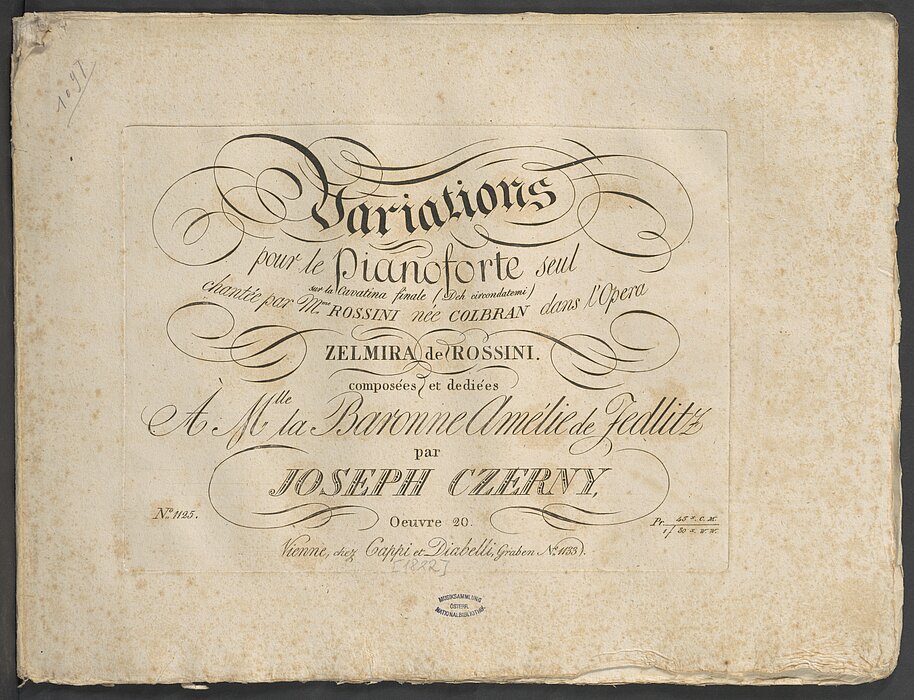 1097
Variations
pour le Pianoforte seul
sur la Cavatina finale (Deh circondatemi)
chantée par M.me ROSSINI née COLBRAN dans l'Opera
ZELMIRA de ROSSINI.
composées et dediées
À Mlle la Baronne Amélie de Jedlitz
par
JOSEPH CZERNY,
Oeuvre 20.
No. 1125.
Pr. 45 x. C. M.
1 f 30 x. W. W.
Vienne, chez Cappi et Diabelli, Graben No. 1133).
[1822]
MUSIKSAMMLUNG
ÖSTERR.
NATIONALBIBLIOTHEK